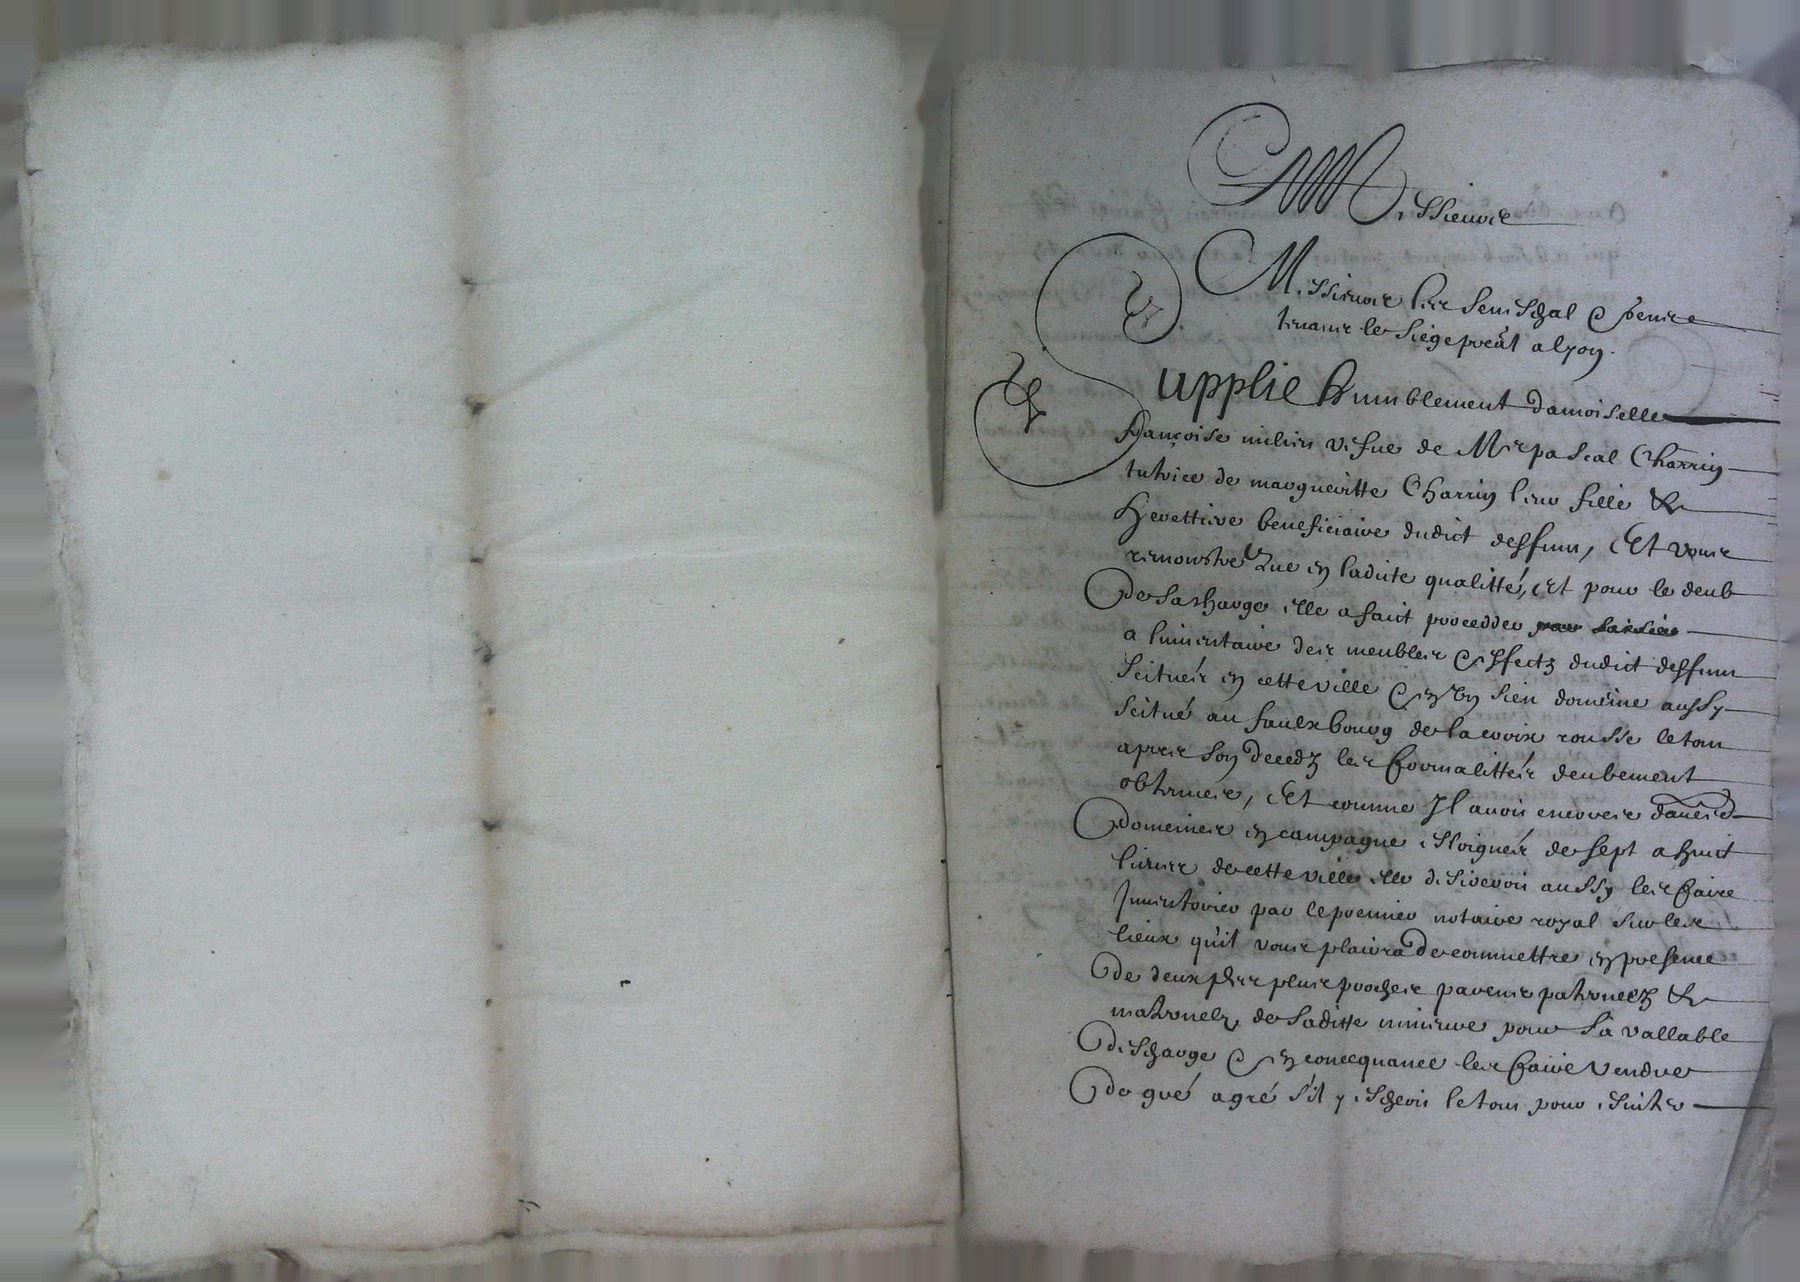 Messieurs
Messieurs les seneschal & gens
tenans le siege preal a lyon.
Supplie humblement damoiselle
françoise milien vefue de Mre pascal Charrin
tutrice de margueritte Charrin leur fille &
herettiere beneficiaire dudict deffunt, Et vous
remonstre que en ladite qualitté, Et pour le deub
de sa charge elle a faict procedder
a linventaire des meubles & effectz dudict deffunt
scitués en cette ville & en un sien domeine aussy
scitué au faulxbourg de la croix rousse le tout
apres son decedz les formalittés deubement
obseruées, Et comme Il auoit encores
domeines en campagne esloignés de sept a huict
lieues de cette ville elle desireroit aussy les faire
Inventorier par le premier notaire royal sur les
lieux qu'il vous plairra de commettre en presence
de deux des plus proches parens paternelz &
maternelz de laditte mineure pour sa vallable
descharge & en consequance les faire vendre
de gré a gré s'il y escheoit le tout pour esuiter